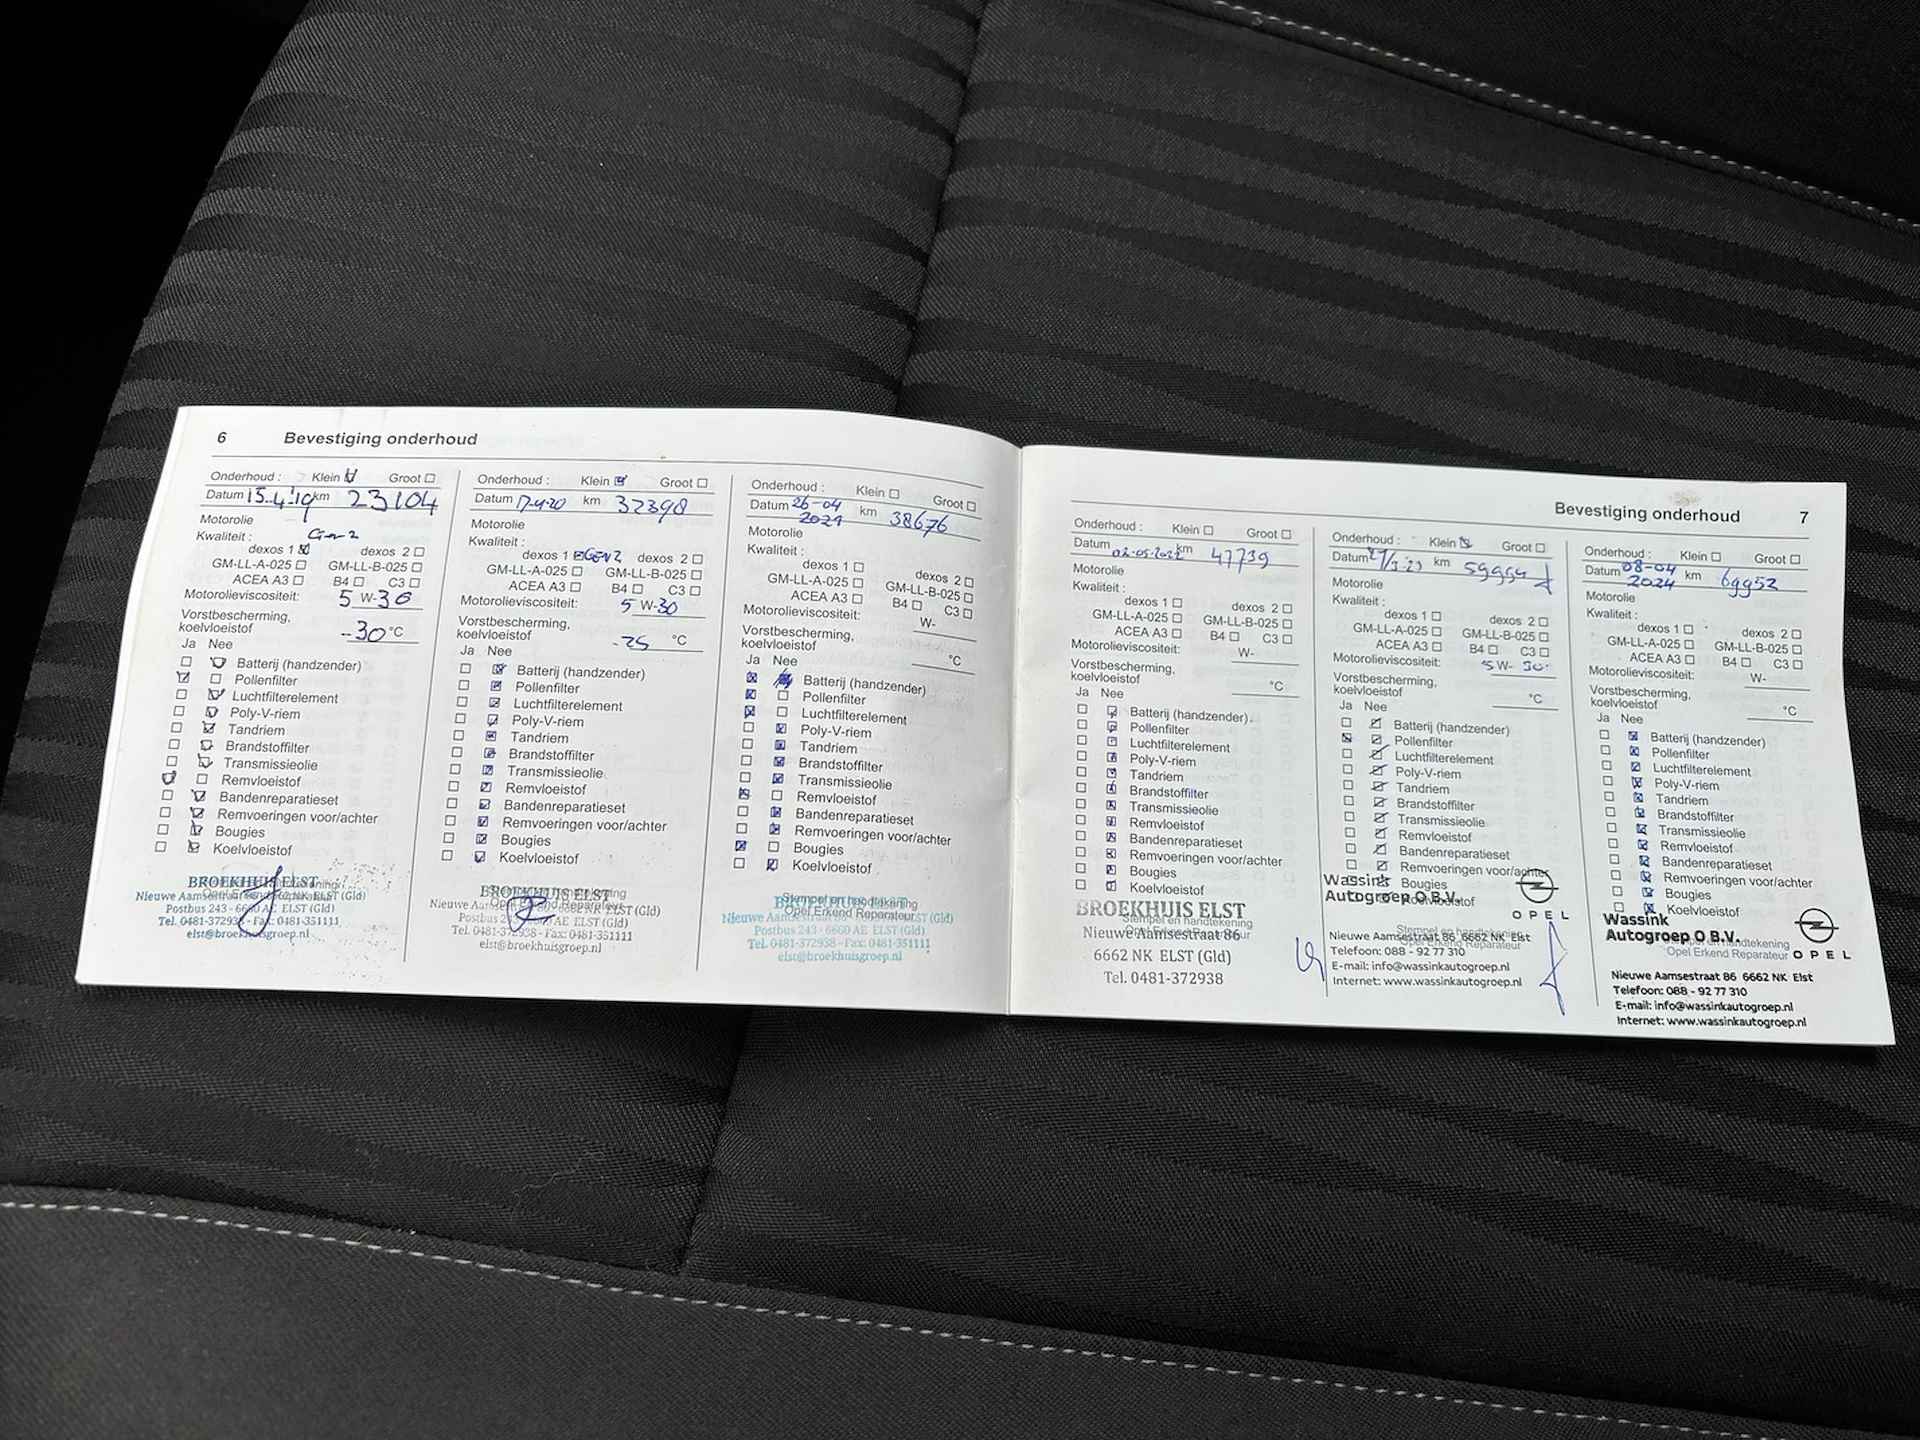 6 Bevestiging onderhoud
Onderhoud : Klein Groot
Datum 15-4-'19 km 23104
Motorolie
Kwaliteit : Gen 2
dexos 1 dexos 2
GM-LL-A-025 GM-LL-B-025
ACEA A3 B4 C3
Motorolieviscositeit: 5 W-30
Vorstbescherming,
koelvloeistof -30 °C
Ja Nee
Batterij (handzender)
Pollenfilter
Luchtfilterelement
Poly-V-riem
Tandriem
Brandstoffilter
Transmissieolie
Remvloeistof
Bandenreparatieset
Remvoeringen voor/achter
Bougies
Koelvloeistof
BROEKHUIS ELST
Nieuwe Aamsestraat 6662 NK ELST (Gld)
Postbus 243 - 6660 AE ELST (Gld)
Tel. 0481-372938 - Fax: 0481-351111
elst@broekhuisgroep.nl
Onderhoud : Klein Groot
Datum 17-4-20 km 32398
Motorolie
Kwaliteit :
dexos 1 GEN2 dexos 2
GM-LL-A-025 GM-LL-B-025
ACEA A3 B4 C3
Motorolieviscositeit: 5 W-30
Vorstbescherming,
koelvloeistof -25 °C
Ja Nee
Batterij (handzender)
Pollenfilter
Luchtfilterelement
Poly-V-riem
Tandriem
Brandstoffilter
Transmissieolie
Remvloeistof
Bandenreparatieset
Remvoeringen voor/achter
Bougies
Koelvloeistof
BROEKHUIS ELST
Nieuwe 6662 NK ELST (Gld)
Postbus 243 - 6660 AE ELST (Gld)
Tel. 0481-372938 - Fax: 0481-351111
elst@broekhuisgroep.nl
Onderhoud : Klein Groot
Datum 26-04 2021 km 38676
Motorolie
Kwaliteit :
dexos 1 dexos 2
GM-LL-A-025 GM-LL-B-025
ACEA A3 B4 C3
Motorolieviscositeit: W-
Vorstbescherming,
koelvloeistof °C
Ja Nee
Batterij (handzender)
Pollenfilter
Luchtfilterelement
Poly-V-riem
Tandriem
Brandstoffilter
Transmissieolie
Remvloeistof
Bandenreparatieset
Remvoeringen voor/achter
Bougies
Koelvloeistof
Stempel en handtekening
Opel Erkend Reparateur
Postbus 243 - 6660 AE ELST (Gld)
Tel. 0481-372938 - Fax: 0481-351111
elst@broekhuisgroep.nl
Bevestiging onderhoud 7
Onderhoud : Klein Groot
Datum 02-05-2022 km 47739
Motorolie
Kwaliteit :
dexos 1 dexos 2
GM-LL-A-025 GM-LL-B-025
ACEA A3 B4 C3
Motorolieviscositeit: W-
Vorstbescherming,
koelvloeistof °C
Ja Nee
Batterij (handzender)
Pollenfilter
Luchtfilterelement
Poly-V-riem
Tandriem
Brandstoffilter
Transmissieolie
Remvloeistof
Bandenreparatieset
Remvoeringen voor/achter
Bougies
Koelvloeistof
BROEKHUIS ELST
Stempel en handtekening
Nieuwe Aamsestraat 86
6662 NK ELST (Gld)
Tel. 0481-372938
Onderhoud : Klein Groot
Datum km 59994
Motorolie
Kwaliteit :
dexos 1 dexos 2
GM-LL-A-025 GM-LL-B-025
ACEA A3 B4 C3
Motorolieviscositeit: 5 W-30
Vorstbescherming,
koelvloeistof °C
Ja Nee
Batterij (handzender)
Pollenfilter
Luchtfilterelement
Poly-V-riem
Tandriem
Brandstoffilter
Transmissieolie
Remvloeistof
Bandenreparatieset
Remvoeringen voor/achter
Bougies
Wassink
Autogroep O B.V.
OPEL
Nieuwe Aamsestraat 86 6662 NK Elst
Telefoon: 088 - 92 77 310
E-mail: info@wassinkautogroep.nl
Internet: www.wassinkautogroep.nl
Onderhoud : Klein Groot
Datum 08-04 2024 km 69952
Motorolie
Kwaliteit :
dexos 1 dexos 2
GM-LL-A-025 GM-LL-B-025
ACEA A3 B4 C3
Motorolieviscositeit: W-
Vorstbescherming,
koelvloeistof °C
Ja Nee
Batterij (handzender)
Pollenfilter
Luchtfilterelement
Poly-V-riem
Tandriem
Brandstoffilter
Transmissieolie
Remvloeistof
Bandenreparatieset
Remvoeringen voor/achter
Bougies
Koelvloeistof
Wassink
Autogroep O B.V.
Opel Erkend Reparateur
OPEL
Nieuwe Aamsestraat 86 6662 NK Elst
Telefoon: 088 - 92 77 310
E-mail: info@wassinkautogroep.nl
Internet: www.wassinkautogroep.nl